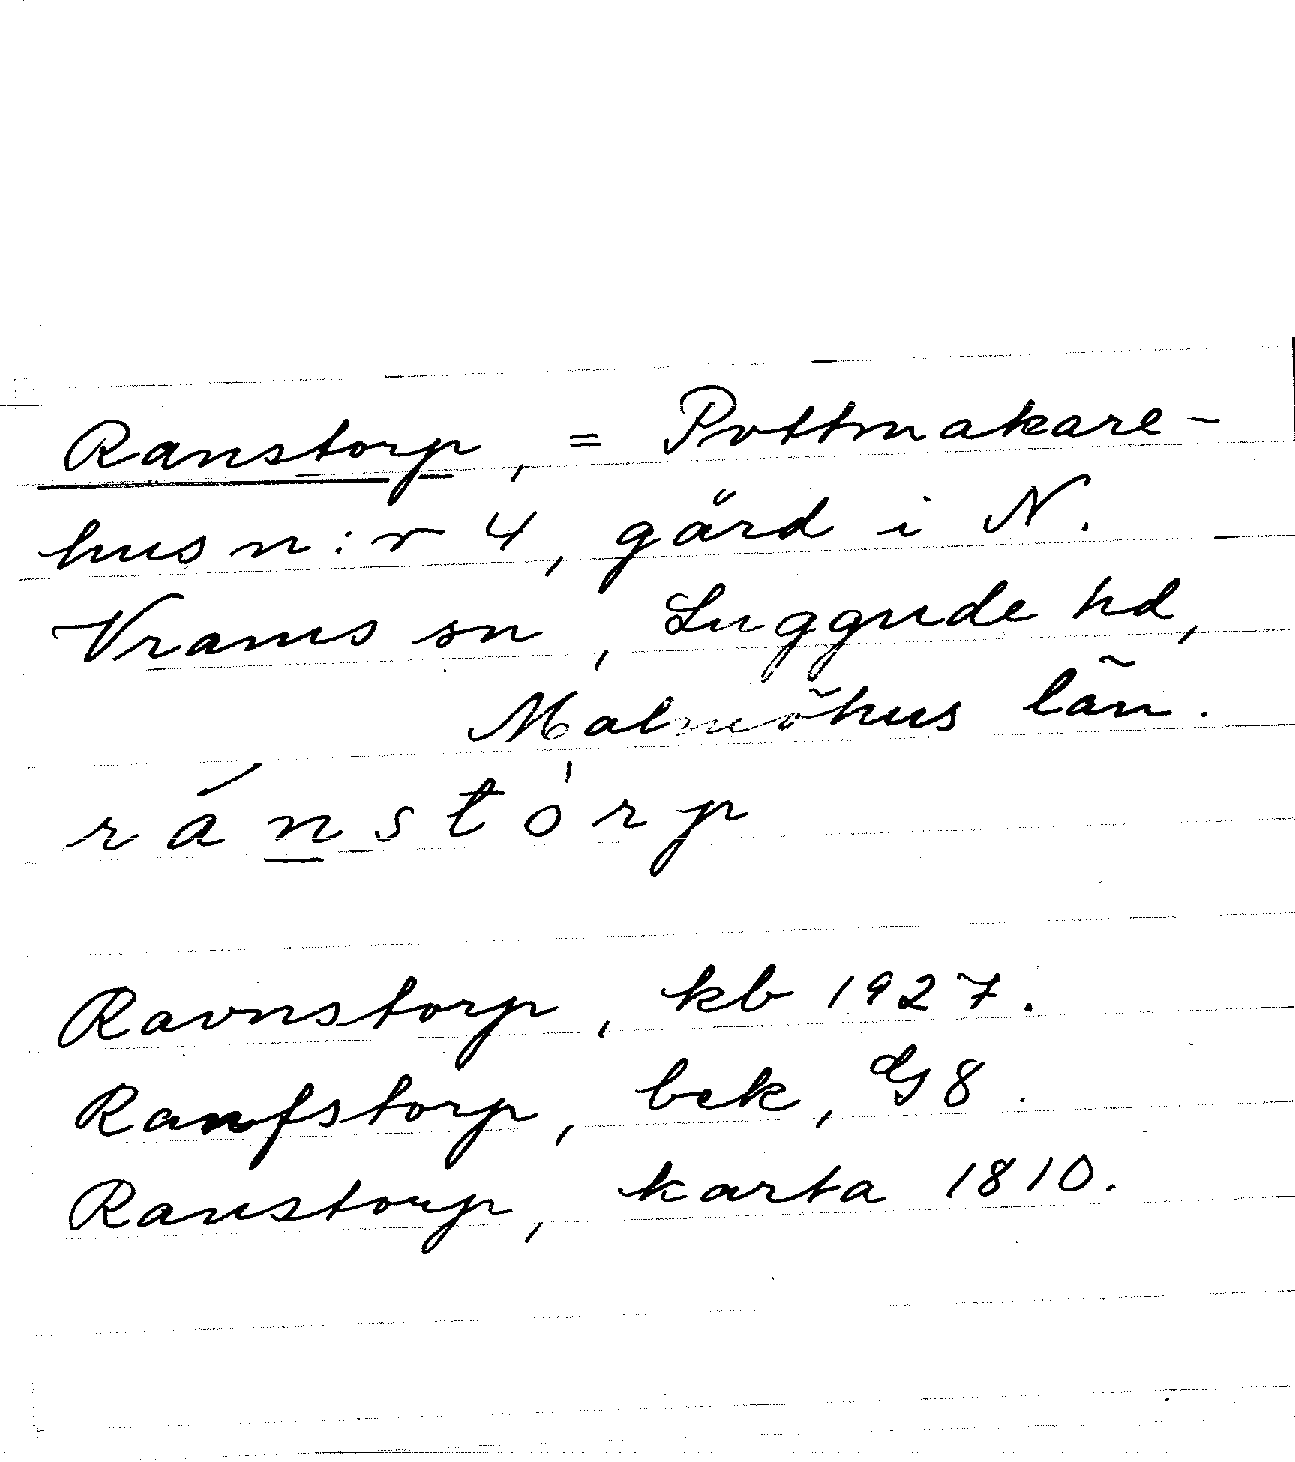 Ranstorp, = Pottmakare-
hus n:r 4, gård i N.
Vrams sn, Luggude hd,
Malmöhus län.
ránstòrp
Ravnstorp, kb 1927.
Ranfstorp, bek, G8.
Ranstorp, karta 1810.